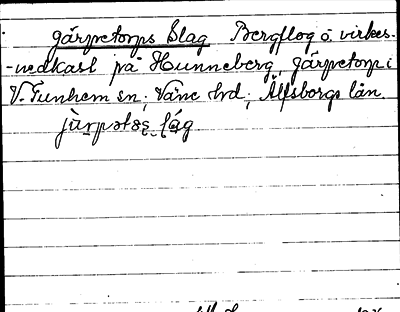 gärpetorps Slag Bergflog o. virkes-
-nedkast på Hunneberg, gärpetorp i
V. Tunhem sn; Väne hd; Älfsborgs län.